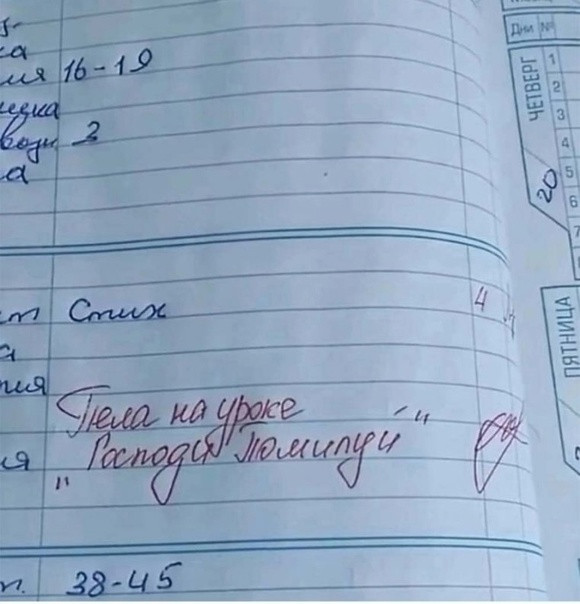 ка
ия 16-19
3
а
Стих 4
а
ия
Пела на уроке
" Господи Помилуй "
ия
п. 38-45
Дни №
ЧЕТВЕРГ
20
1
2
3
4
5
6
7
ПЯТНИЦА